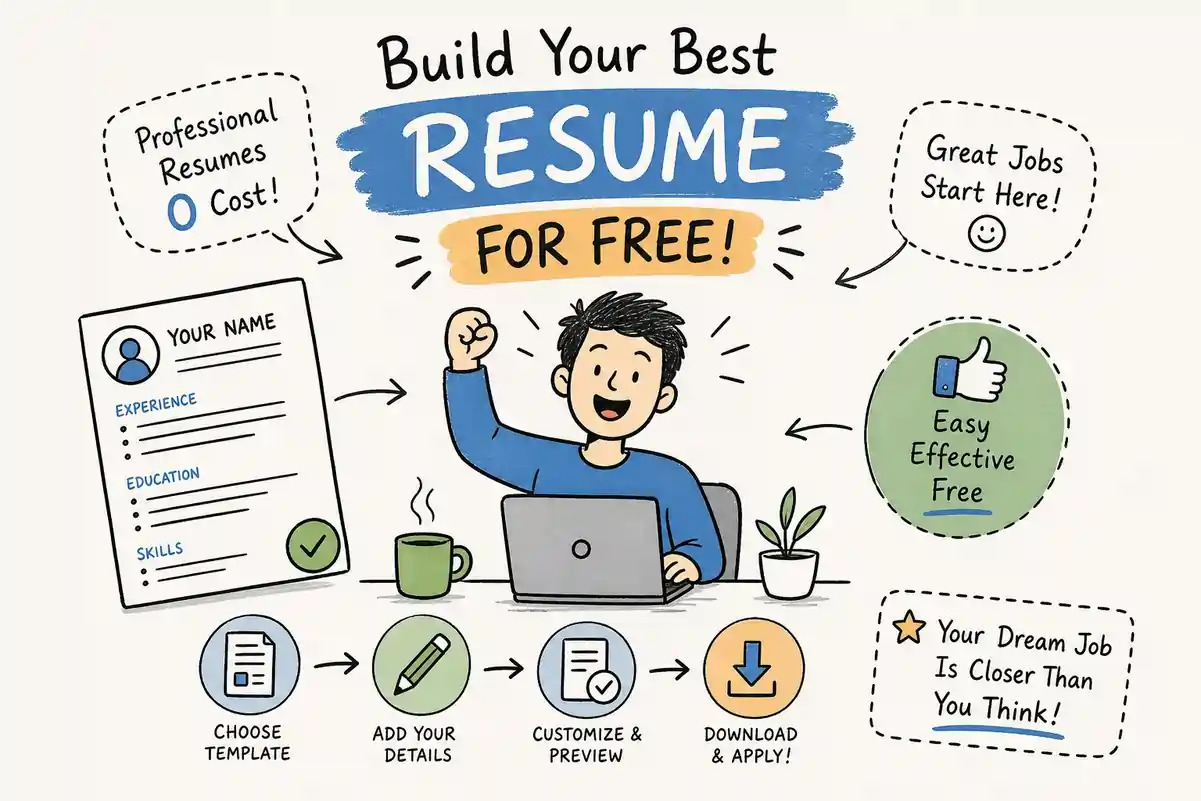 Build Your Best
RESUME
FOR FREE!
Professional
Resumes
0 Cost!
Great Jobs
Start Here!
YOUR NAME
EXPERIENCE
EDUCATION
SKILLS
Easy
Effective
Free
Your Dream Job
Is Closer Than
You Think!
CHOOSE
TEMPLATE
ADD YOUR
DETAILS
CUSTOMIZE &
PREVIEW
DOWNLOAD
& APPLY!